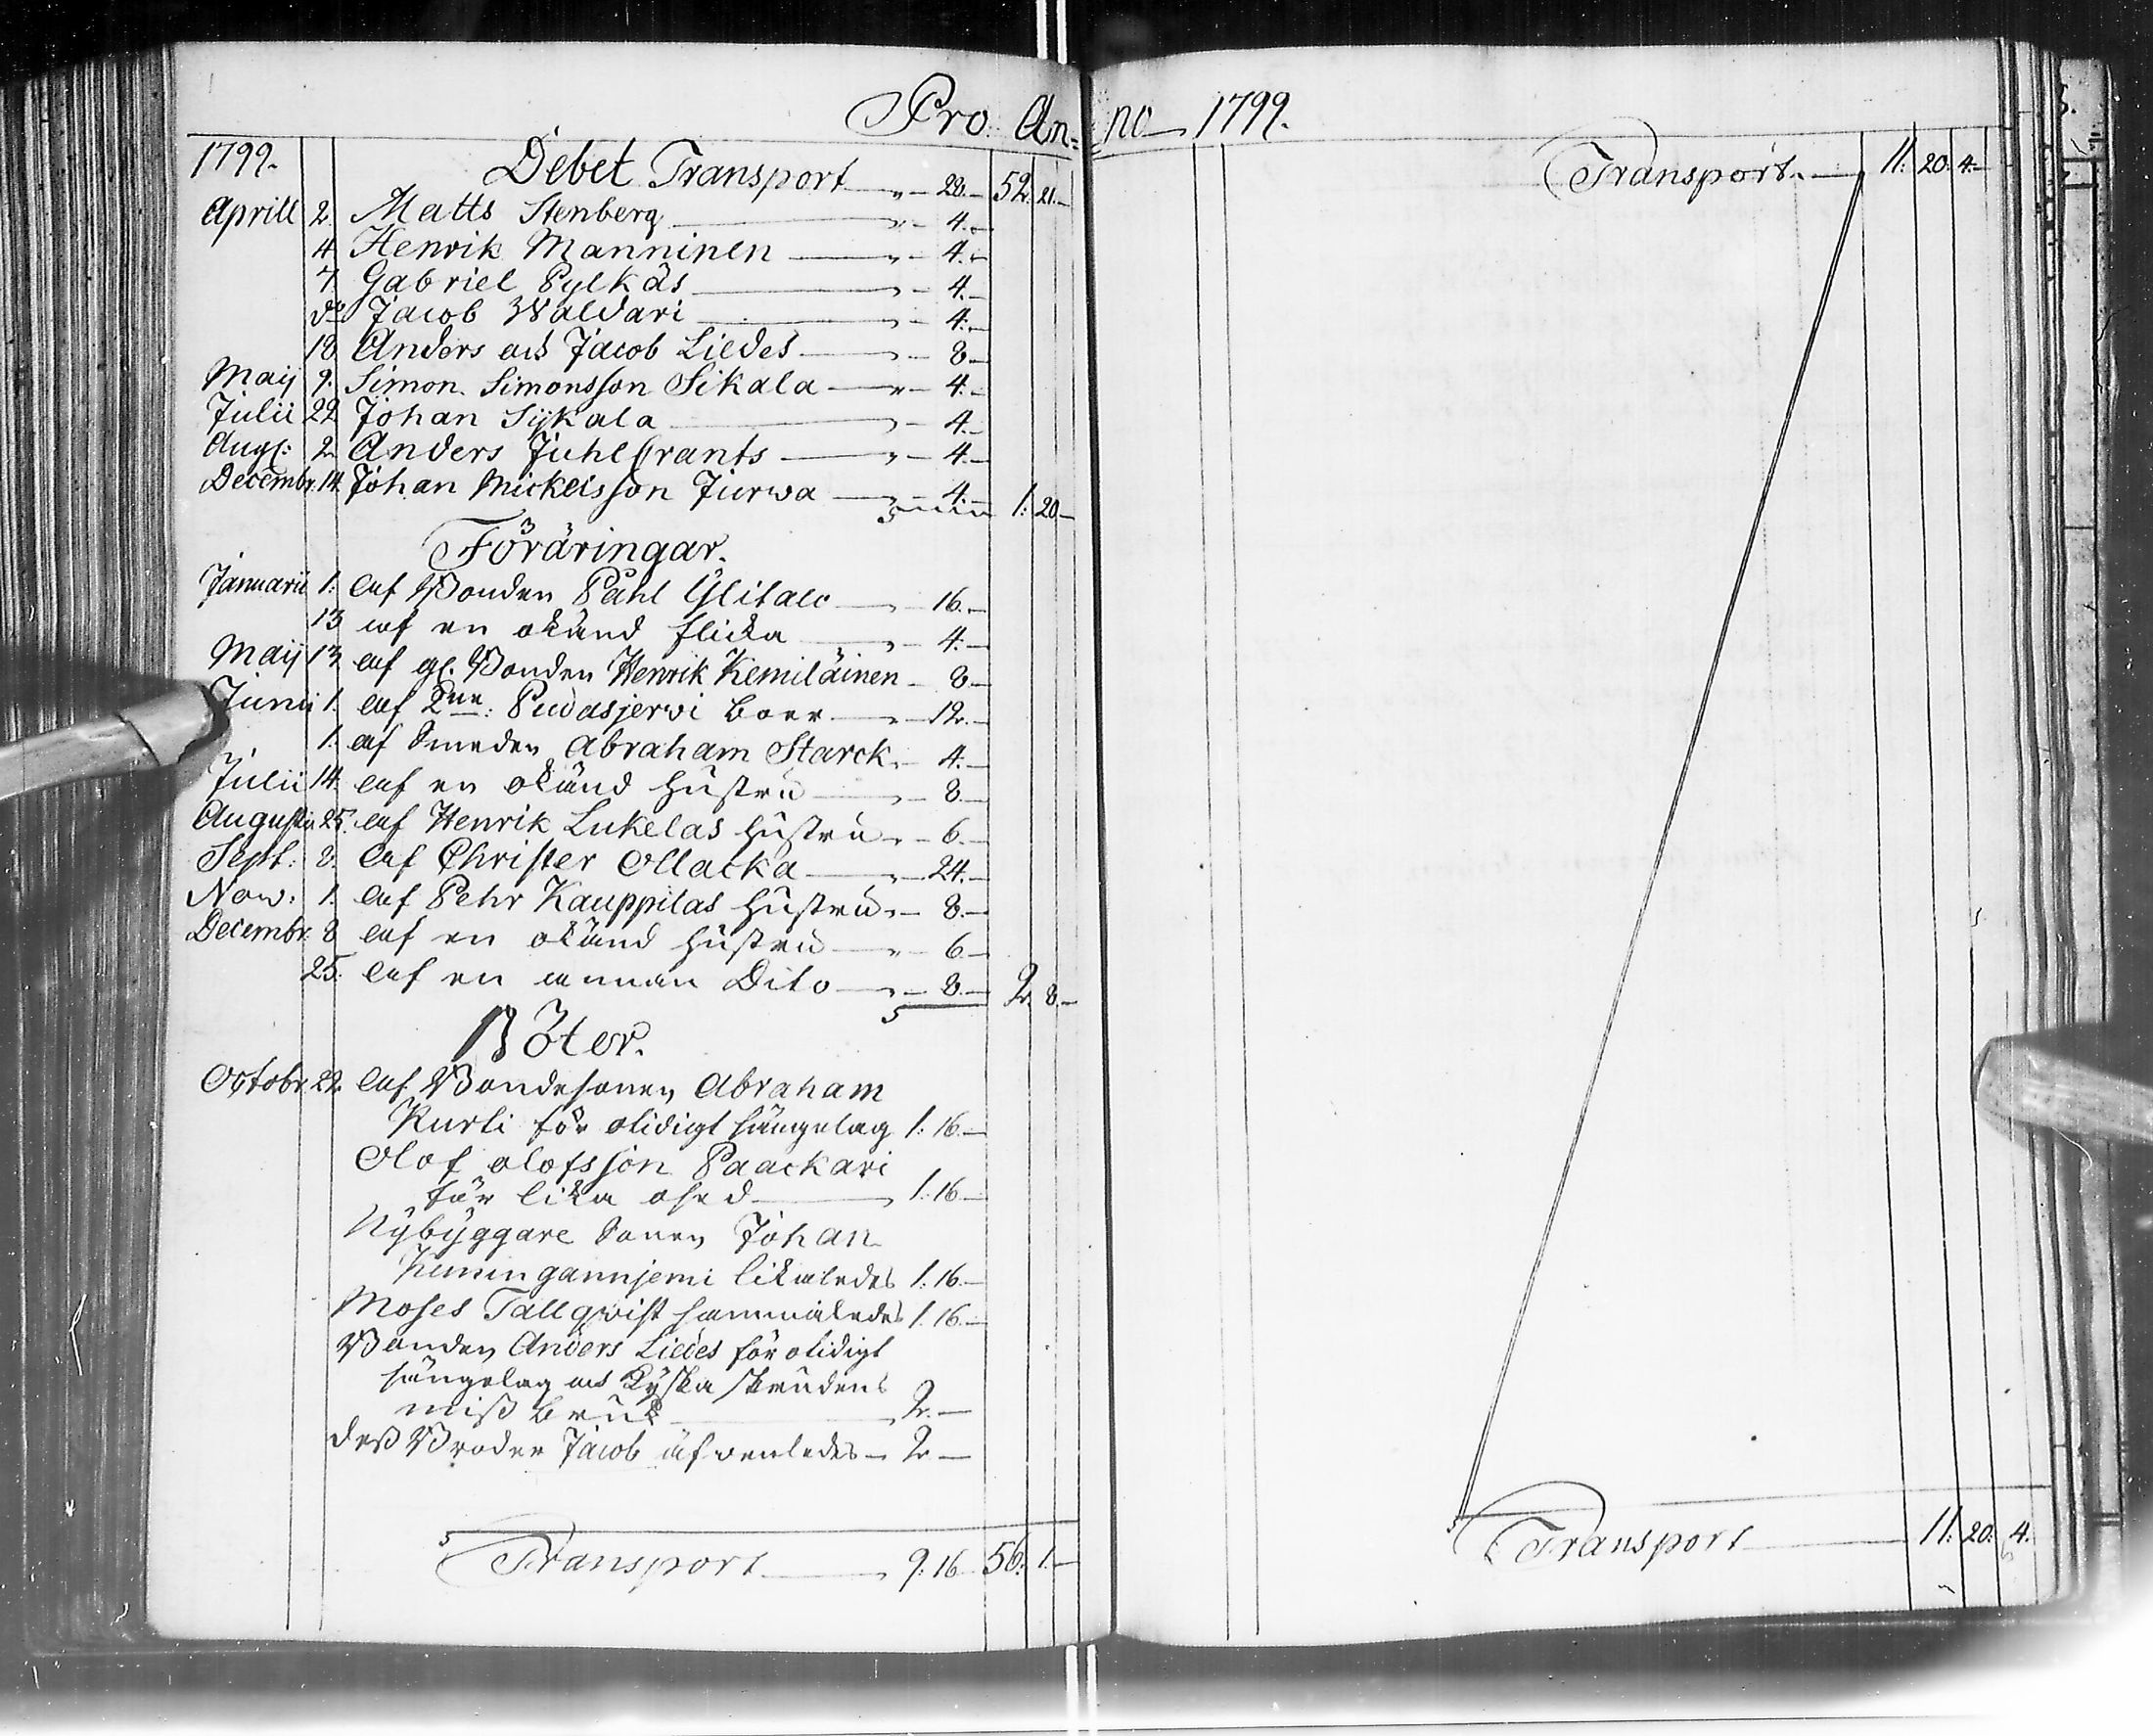 Pro An=no 1799.
1799. Debet Transport " 28.— 52. 21.—
Aprill 2. Matts Stenberg " 4.—
4. Henrik Manninen " 4.—
7. Gabriel Pylkäs " 4.—
do Jacob Waldari " 4.—
18. Anders och Jacob Liedes " 8.—
Maij 9. Simon Simonsson Sikala " 4.—
Julii 22. Johan Sijkala " 4.—
Aug: 2. Anders Juhlbrants " 4.—
Decembr. 14. Johan Mickelsson Jurwa " 4.— 1: 20.—
Föräringar.
Januarii 1: af Bonden Påhl Ylitalo " 16.—
13 af en okänd flicka " 4.—
Maij 13 af gl. Bonden Henrik Kemiläinen 8.—
Junii 1. af Pudasjerwi boer " 12.—
1. af Smeden Abraham Starck 4.—
Julii 14. af en okänd hustru " 8.—
Augusti 25. af Henrik Lukelas hustru " 6.—
Sept: 8. af Christer Ollacka " 24.—
Nov: 1. af Pehr Kauppilas hustru " 8.—
Decembr: 8 af en okänd hustru " 6.—
25. af en annan Dito " 8.— 2. 8.—
Böter.
Octobr. 22. af Bondesonen Abraham
Kurti för otidigt sängelag 1: 16.—
Olof Olofsson Paackari
för lika osed 1: 16.—
Nybyggare Sonen Johan
likaledes 1: 16.—
Moses Tallqwist sammaledes 1: 16.—
Bonden Anders Liedes för otidigt
sängelag och Kyska skrudens
missbruk 2.—
dess Broder Jacob äfwenledes 2.—
Transport 9: 16 56: 1.—
Transport. 11: 20: 4.—
Transport 11: 20: 4.